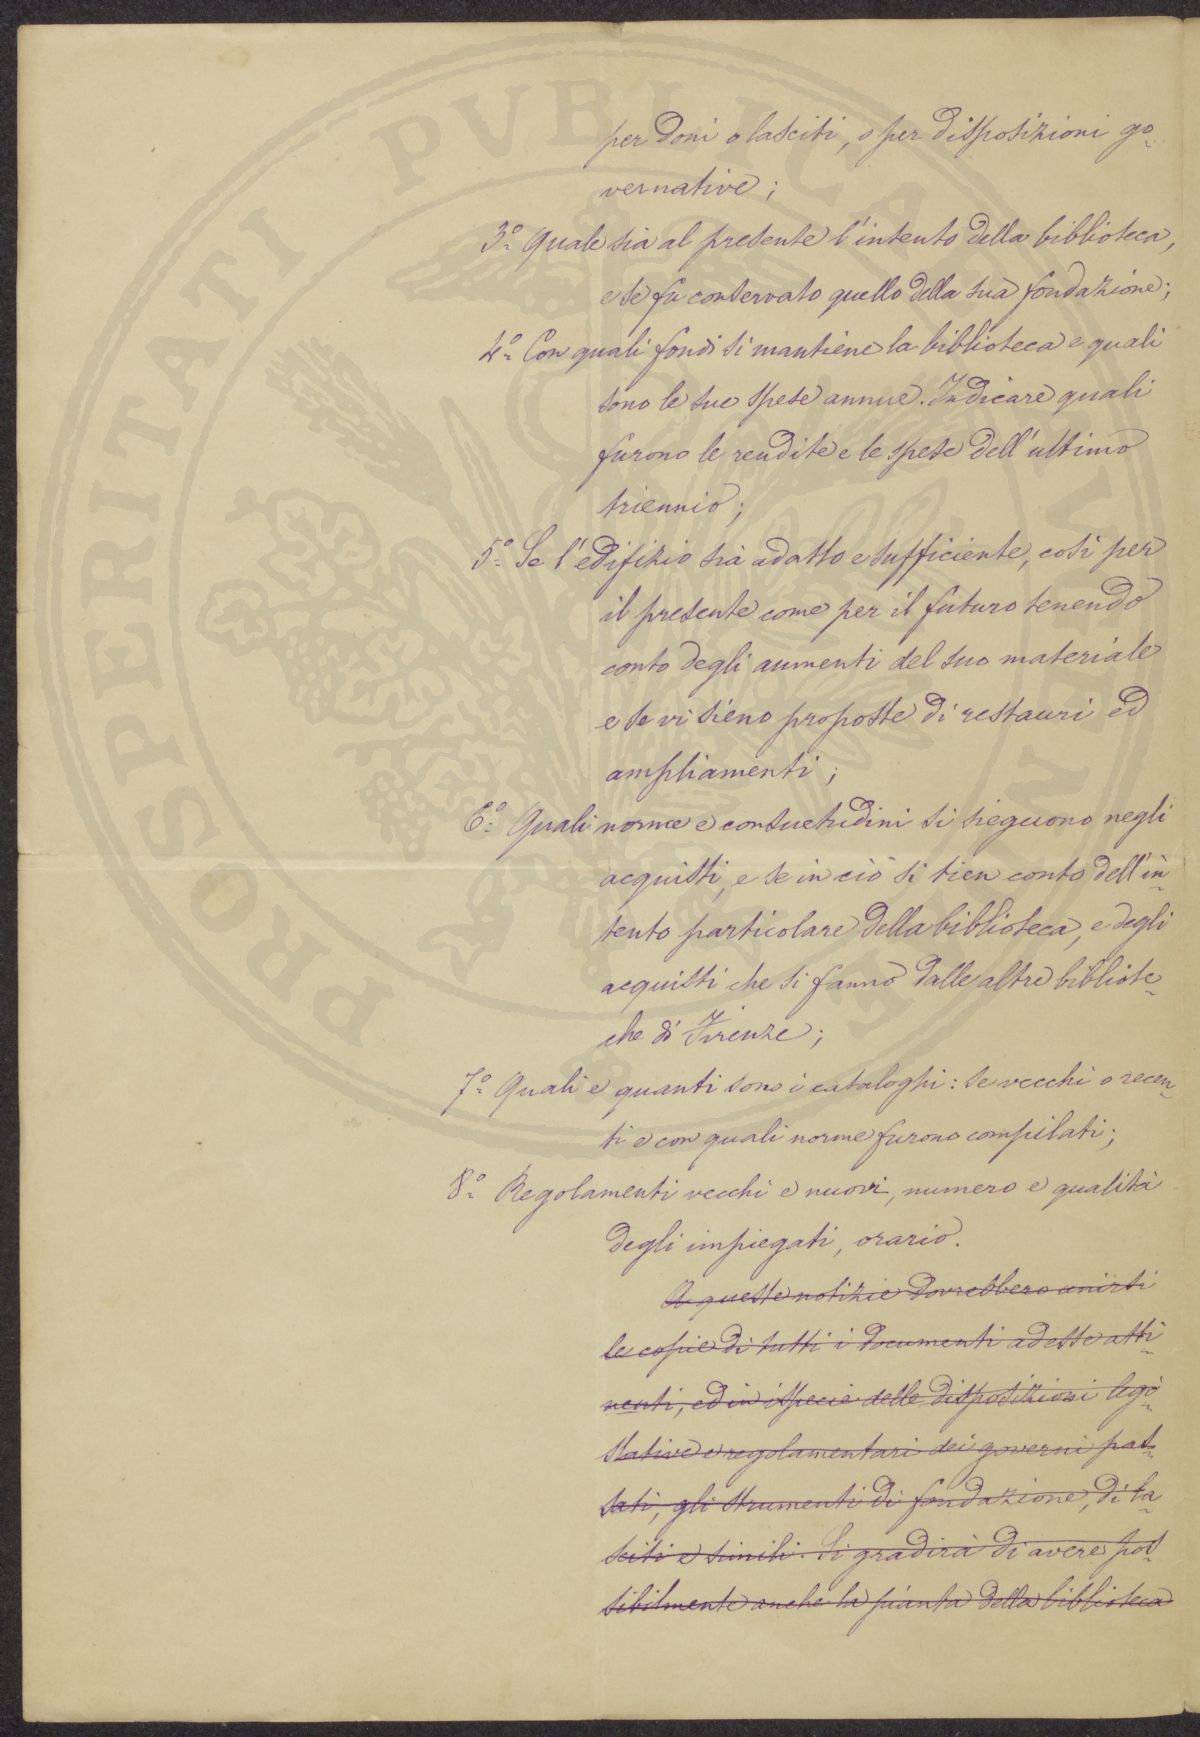 PROSPERITATI PVBLICAE
per doni o lasciti, o per disposizioni go-
vernative;
3º. Quale sia al presente l'intento della biblioteca,
e se fu conservato quello della sua fondazione;
4º. Con quali fondi si mantiene la biblioteca e quali
sono le sue spese annue. Indicare quali
furono le rendite e le spese dell'ultimo
triennio;
5º. Se l'edifizio sia adatto e sufficiente, così per
il presente come per il futuro tenendo
conto degli aumenti del suo materiale
e se vi sieno proposte di restauri ed
ampliamenti;
6º. Quali norme e consuetudini si sieguono negli
acquisti, e se in ciò si tien conto dell'in-
tento particolare della biblioteca, e degli
acquisti che si fanno dalle altre bibliote-
che di Firenze;
7º. Quali e quanti sono i cataloghi: se vecchi o recen-
ti e con quali norme furono compilati;
8º. Regolamenti vecchi e nuovi, numero e qualità
degli impiegati, orario.
A queste notizie dovrebbero unirsi
le copie di tutti i documenti ad esse atti-
nenti, ed in ispecie delle disposizioni legi-
slative e regolamentari dei governi pas-
sati, gli strumenti di fondazione, di la-
sciti e simili. Si gradirà di avere pos-
sibilmente anche la pianta della biblioteca